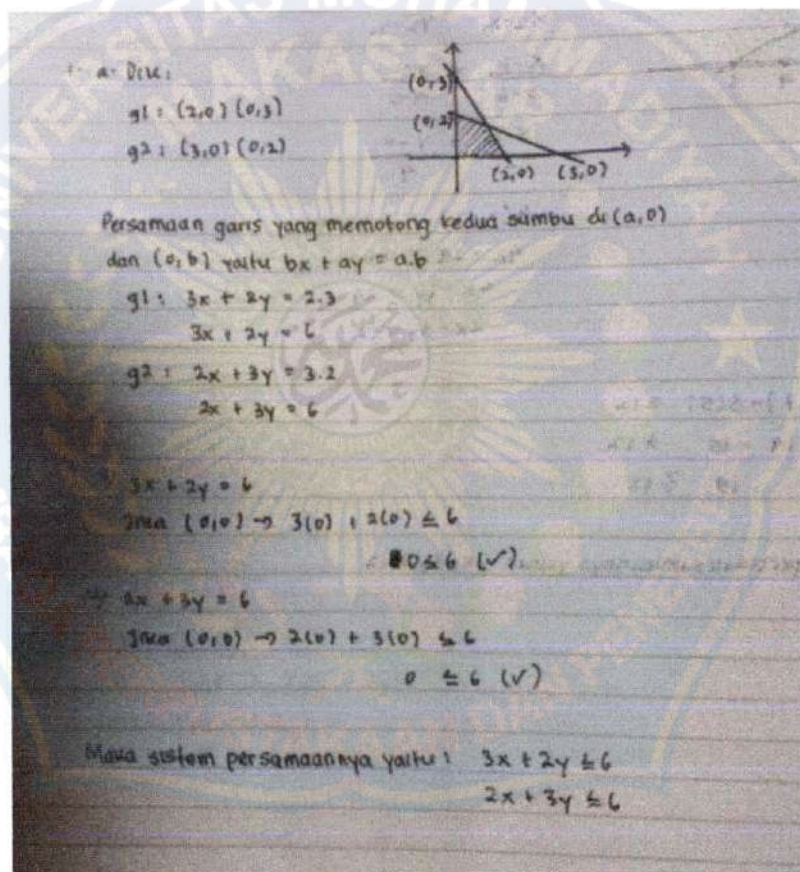 a. Dik:
g1 : (2,0) (0,3)
g2 : (3,0) (0,2)
(0,3)
(0,2)
(2,0) (3,0)
Persamaan garis yang memotong kedua sumbu di (a,0)
dan (0,b) yaitu bx + ay = a.b
g1 : 3x + 2y = 2.3
3x + 2y = 6
g2 : 2x + 3y = 3.2
2x + 3y = 6
3x + 2y = 6
Jika (0,0) → 3(0) + 2(0) ≤ 6
0 ≤ 6 (✓)
2x + 3y = 6
Jika (0,0) → 2(0) + 3(0) ≤ 6
0 ≤ 6 (✓)
Maka sistem persamaannya yaitu : 3x + 2y ≤ 6
2x + 3y ≤ 6